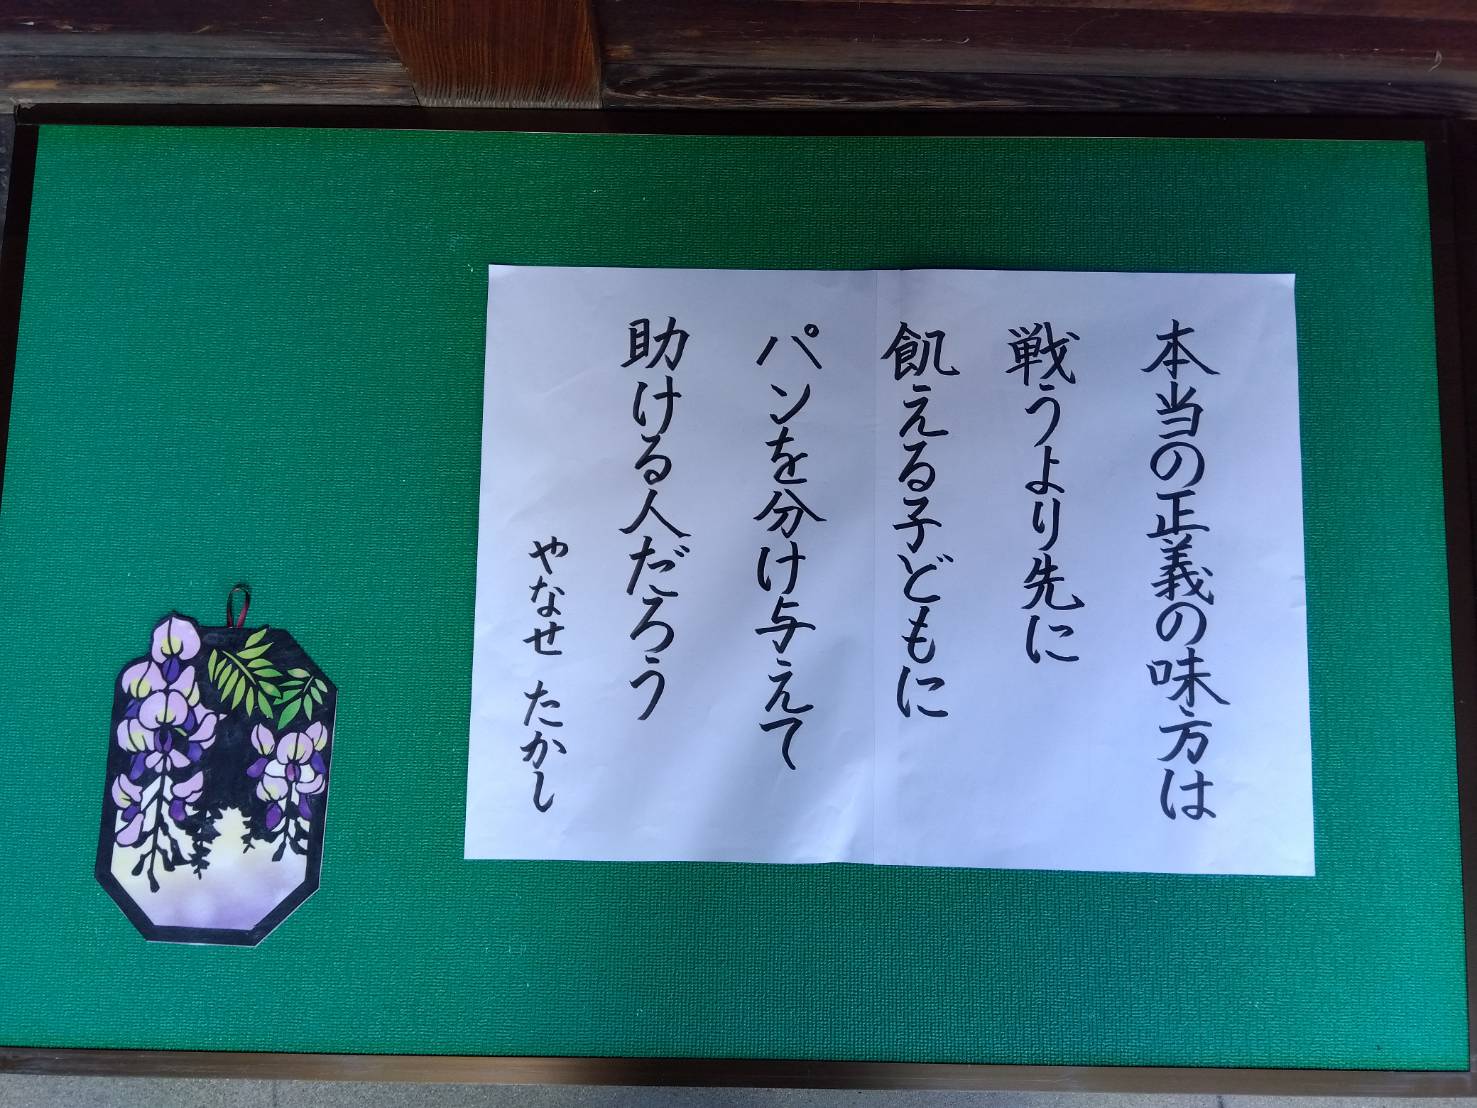 本当の正義の味方は
戦うより先に
飢える子どもに
パンを分け与えて
助ける人だろう
やなせ たかし